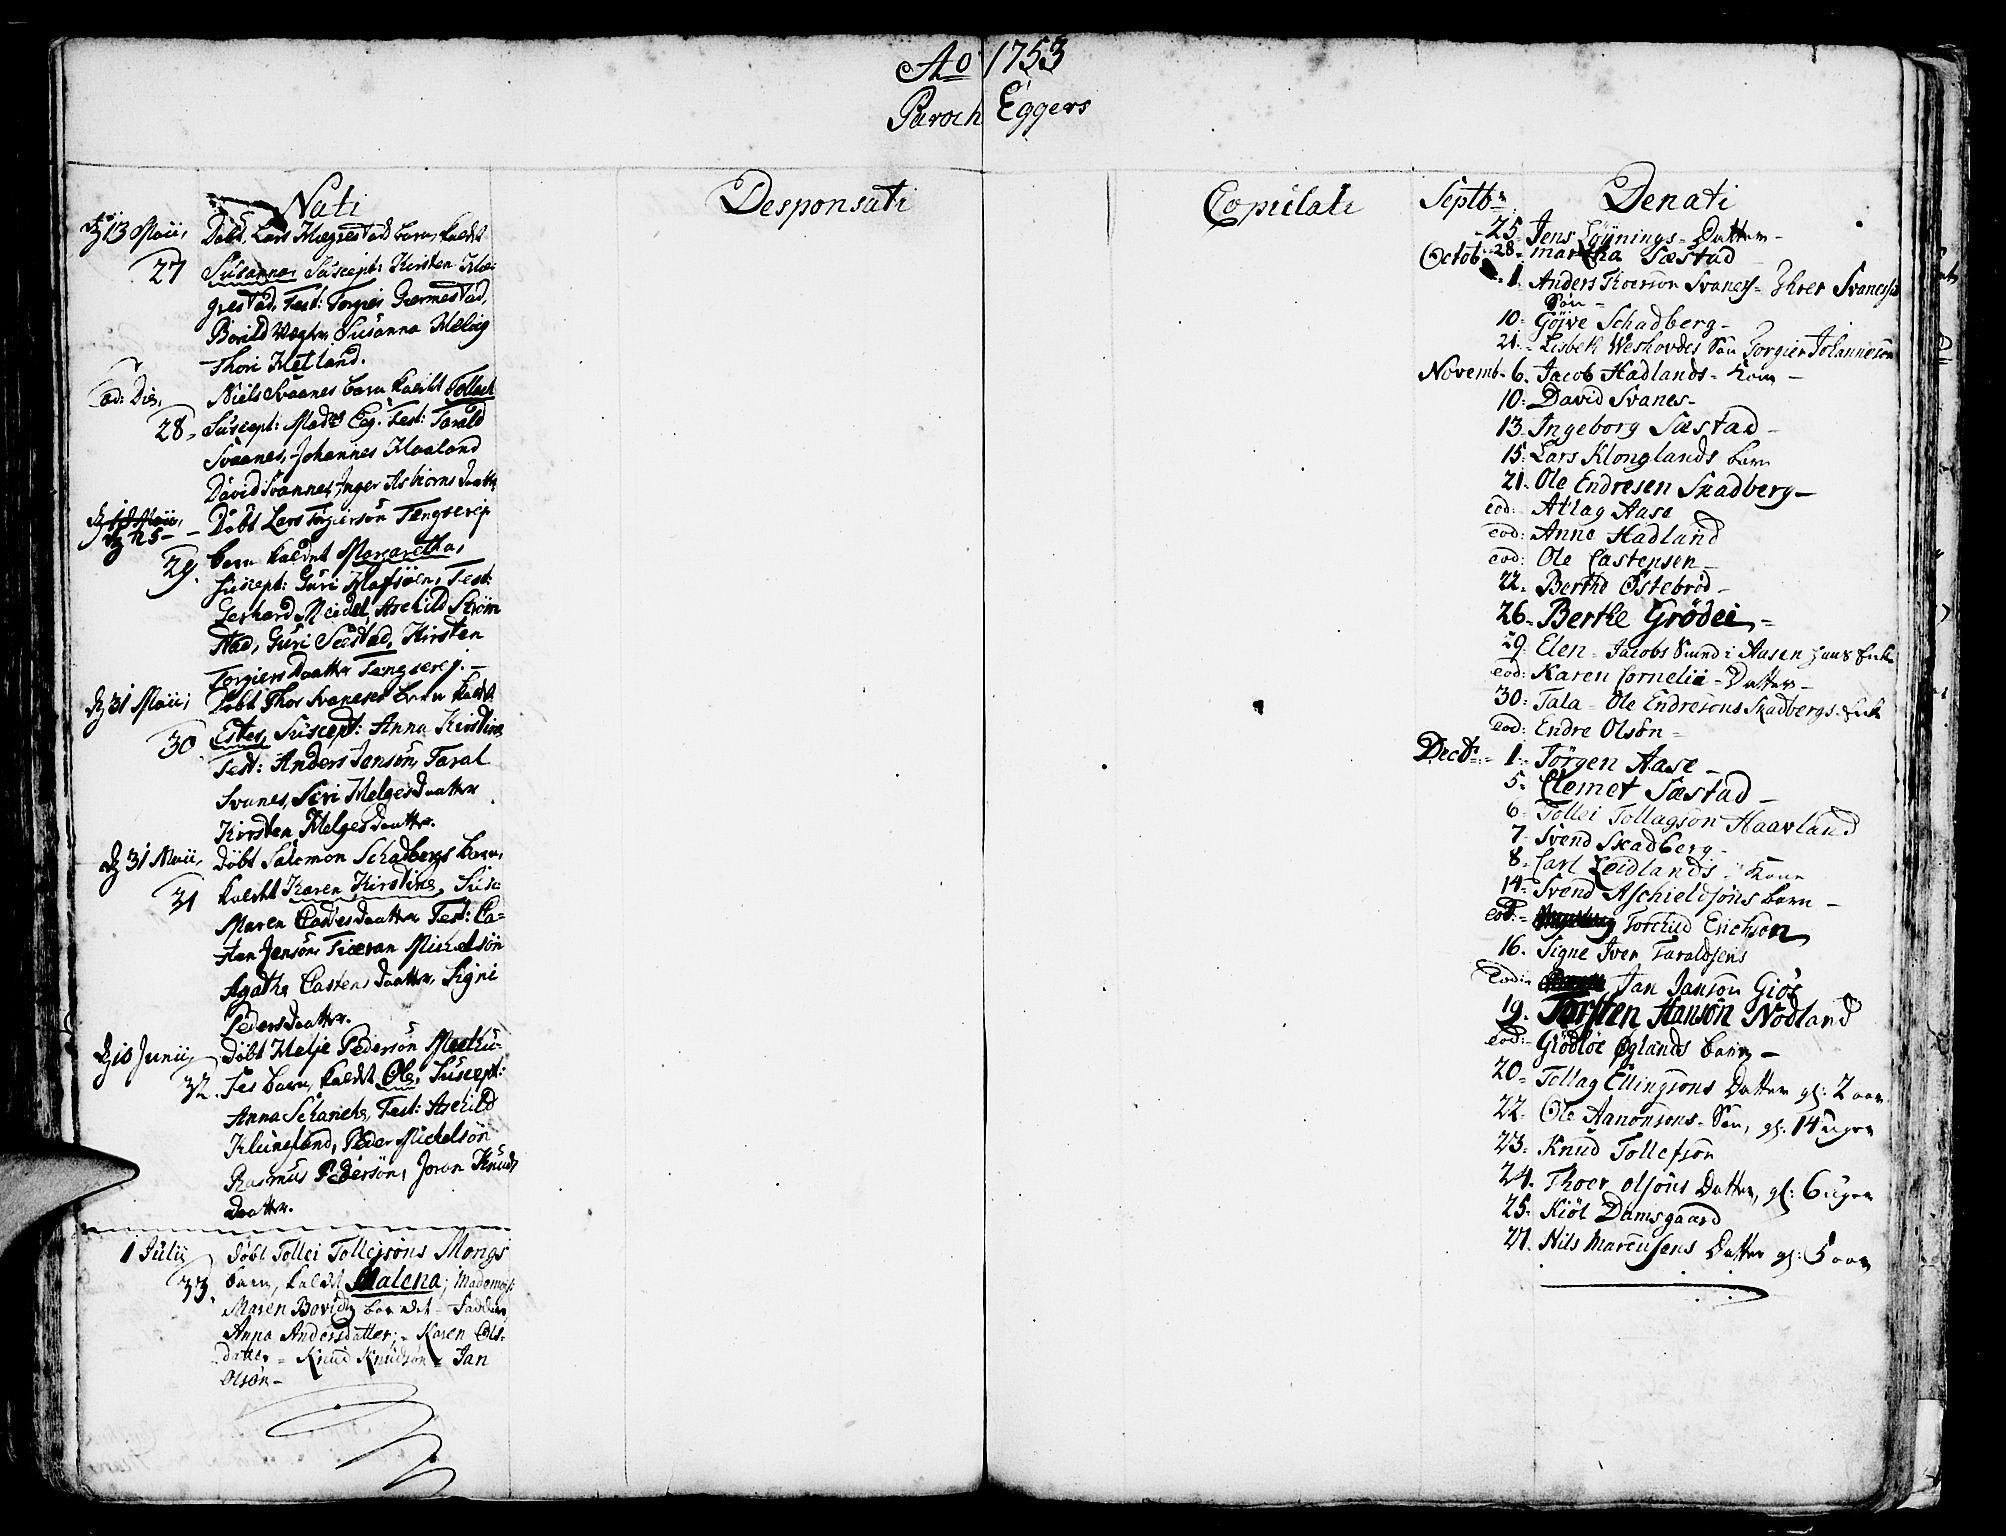 Ao 1753
Paroch Eggers
Nati
13 Maii, Döbt Lars Hægrestad barn, kaldet
27 Susanna, Suscept: Kirsten Hæ-
grestad, Test: Torgier Giermestad,
Borild Susanna Helvig
Thori Hetland.
eod: Die, Niels Svanes barn kaldet Tollach
28. Suscept: Test: Tarald
Svaanes, Johannes Haaland
David Svannes, Inger Asbiorns daatter
Maii,
25 - Döbt Lars Torgiersön Tengserej
29. barn kaldet Margaretha,
Suscept: Guri Test:
Gerhard Meidel, Aschild Ström
stad, Guri Seestad, Kirsten
Torgiers Daatter Tengserej. -
31 Maii, Döbt Thor Svaneses barn kaldet
30. Ester, Suscept: Anna Kirstine
Test: Anders Jensön, Taral
Svanes, Siri Helges Daatter
Kirsten Helges Daatter.
31 Maii, Döbt Salomon Schadbergs barn,
31 kaldet Karen Kirstine, Susc:
Maren Castes daatter Test: Ca-
sten Jensön, Michelsön
Agatha Castens Daatter, Signe
Peders Daatter.
10 Junii, Döbt Helje Pedersön
32. barn, kaldet Ole, Suscept:
Anna Test: Aschild
Klungland, Peder Michelsön
Rasmus Pedersön, Joran Knuds
Daatter.
1 Julii Döbt Tollei Tollefsöns Mongs
33. barn, kaldet Malena; Mademois:
Maren bar det - Fadder
Anna Andersdatter; - Karen Ols-
datter - Knud Knudsön - Jan
Olsön -
Desponsati
Copulati
Denati
Septb:
25 - Jens Löynings - Datter -
28 - Martha Sæstad
Octob: 1 - Anders Thoersön Svanes - Thoer Svanes
Sön -
10: Göjve Schadberg -
21. Lisbet Weshovdes Sön Torgier Johannesön
Novemb. 6. Jacob Hadlands - Kone -
10: David Svanes -
13. Ingeborg Sæstad -
15: Lars Klonglands barn
21. Ole Endresen Skadberg -
eod: - Atlag Aase
eod: Anne Hadland
eod: Ole Castensen -
22 - Bertho Östebröd -
26 - Berthe Grödei -
29. Elen - Jacobs i Aasen hans
eod: Karen Cornelii - Datter -
30: Tala - Ole Endresons Skadbergs
eod: Endre Olsön -
Decb: - 1 - Jörgen Aase -
5. Clemet Sæstad -
6 - Tollei Tollagsön Haavland
7. Svend Skadberg -
8. Carl Leidlands - Kone
14. Svend Aschieldsöns barn -
eod: - Torchild Erichsön
16. Signe Iver Taraldsens
eod: Jan Jansön Giös
19. Torsten Hansön Nödland
eod: - Öglands barn -
20 - Tollag Ellingsons Datter gl: 2 aar
22 - Ole Aanonsens - Sön, gl: 14 uger
23. Knud Tollefsön
24. Thoer olsöns Datter, gl: 6 ugor
25. Kiöl Damsgaard
27. Nils Marcusens Datter gl: 5 aar